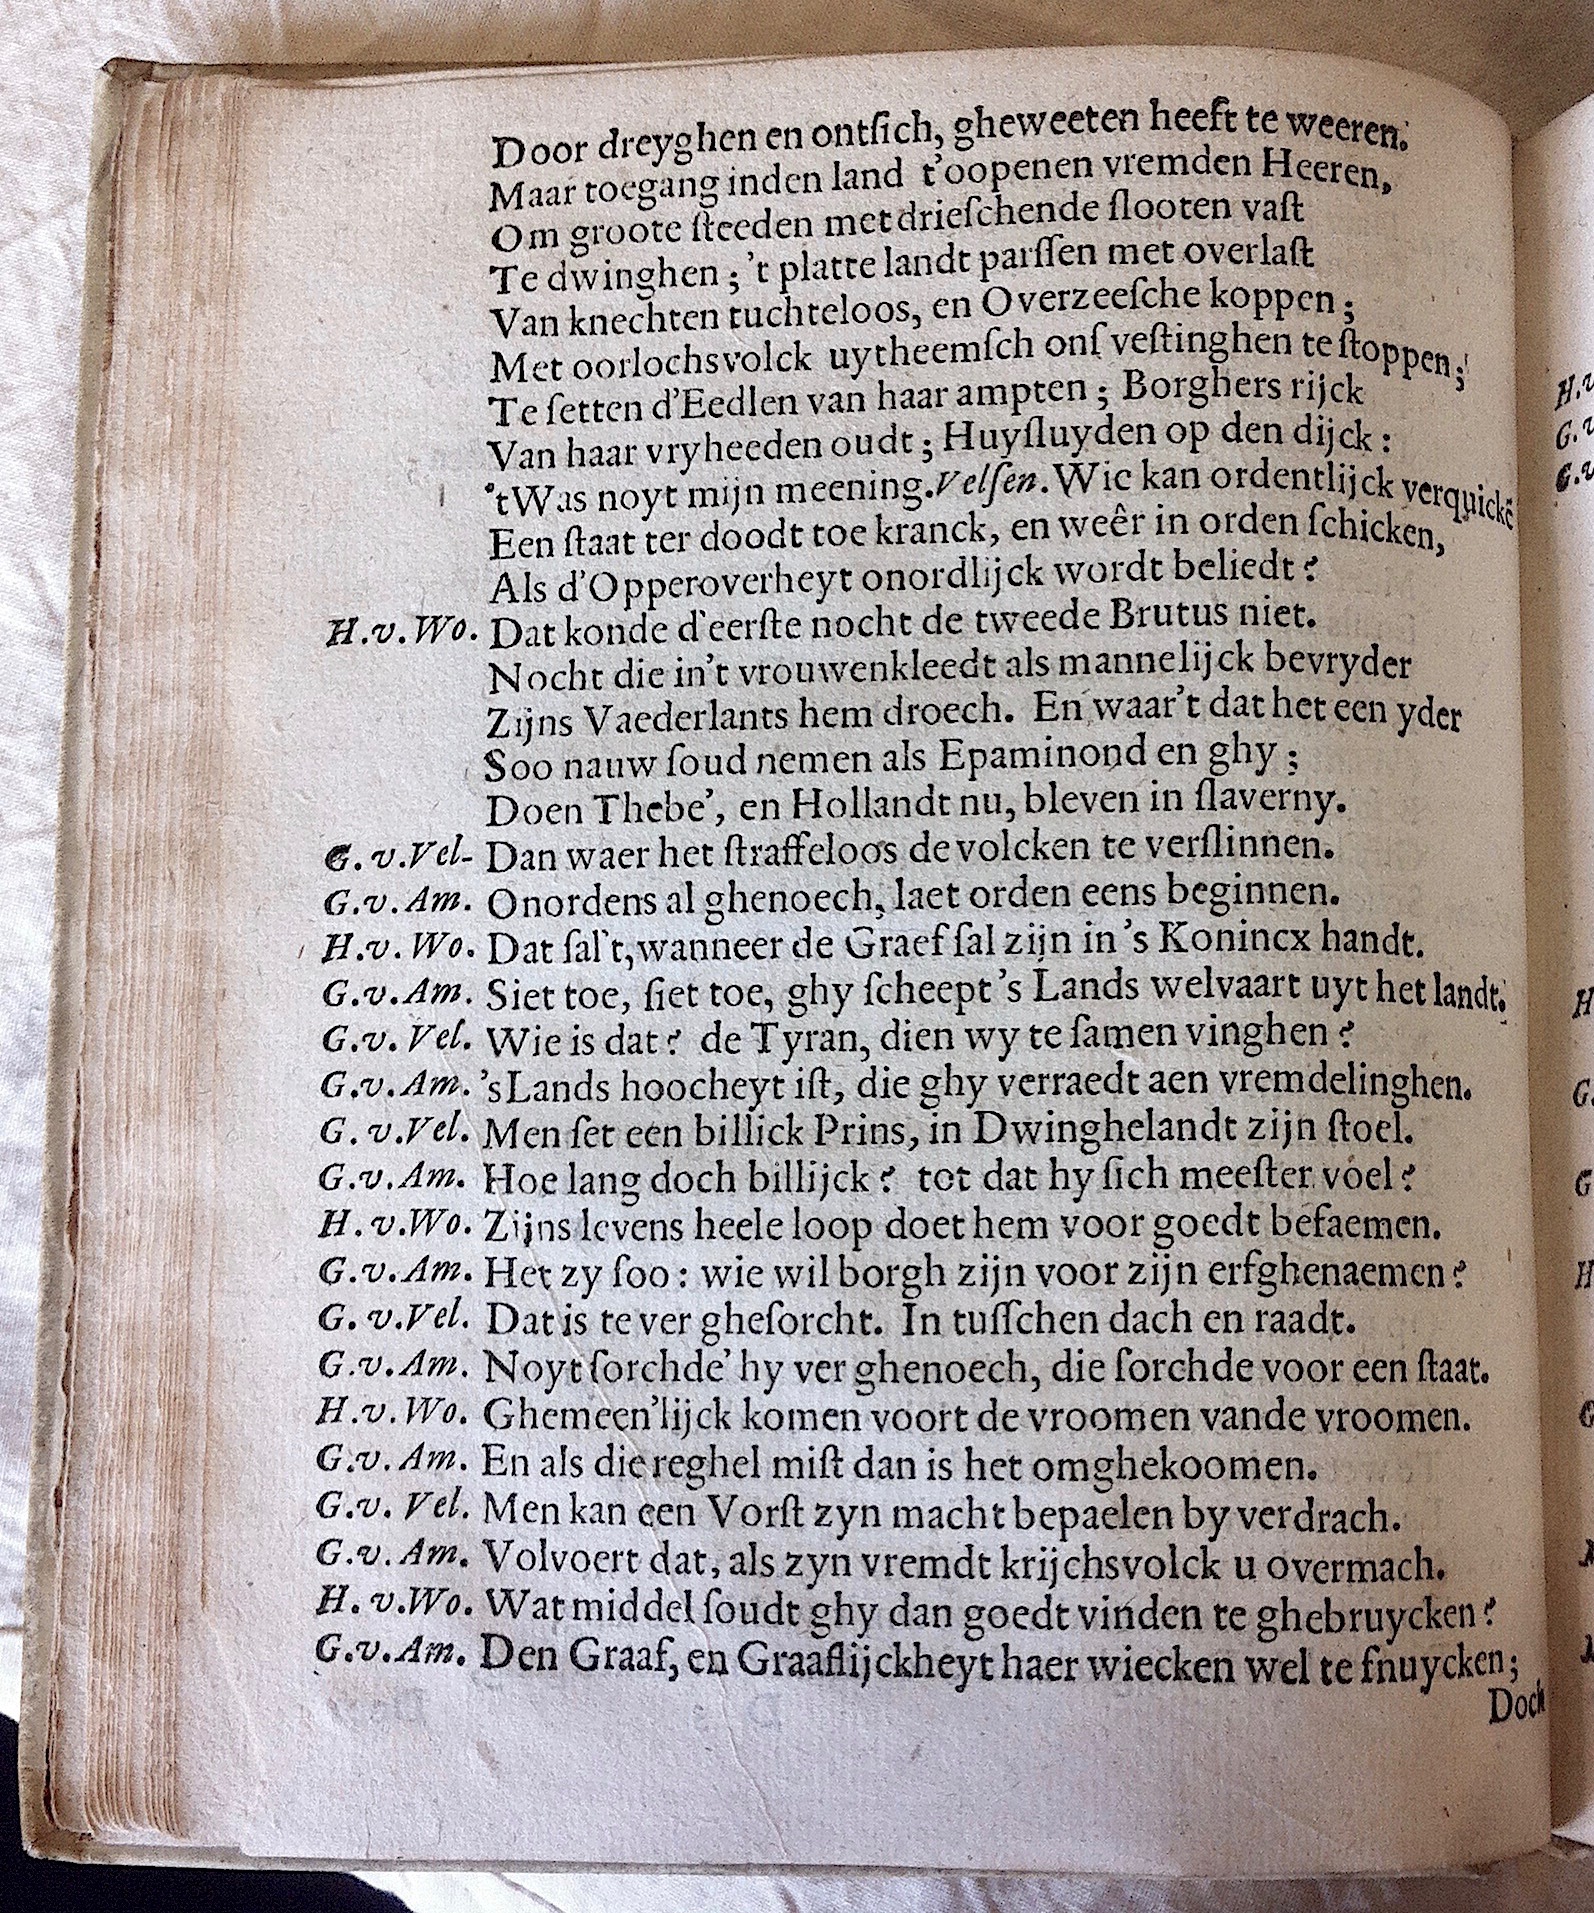 Door dreyghen en ontſich, gheweeten heeft te weeren.
Maar toegang inden land t'oopenen vremden Heeren,
Om groote ſteeden met drieſchende ſlooten vaſt
Te dwinghen; 't platte landt parſſen met overlaſt
Van knechten tuchteloos, en Overzeeſche koppen;
Met oorlochsvolck uytheemſch onſ veſtinghen te ſtoppen;
Te ſetten d'Eedlen van haar ampten; Borghers rijck
Van haar vryheeden oudt; Huyſluyden op den dijck:
'tWas noyt mijn meening. Velſen. Wie kan ordentlijck verquickē
Een ſtaat ter doodt toe kranck, en weêr in orden ſchicken,
Als d'Opperoverheyt onordlijck wordt beliedt?
H.v.Wo. Dat konde d'eerſte nocht de tweede Brutus niet.
Nocht die in't vrouwenkleedt als mannelijck bevryder
Zijns Vaederlants hem droech. En waar't dat het een yder
Soo nauw ſoud nemen als Epaminond en ghy;
Doen Thebe', en Hollandt nu, bleven in ſlaverny.
G.v.Vel- Dan waer het ſtraffeloos de volcken te verſlinnen.
G.v.Am. Onordens al ghenoech, laet orden eens beginnen.
H.v.Wo. Dat ſal't, wanneer de Graef ſal zijn in 's Konincx handt.
G.v.Am. Siet toe, ſiet toe, ghy ſcheept 's Lands welvaart uyt het landt.
G.v.Vel. Wie is dat? de Tyran, dien wy te ſamen vinghen?
G.v.Am. 'sLands hoocheyt iſt, die ghy verraedt aen vremdelinghen.
G.v.Vel. Men ſet een billick Prins, in Dwinghelandt zijn ſtoel.
G.v.Am. Hoe lang doch billijck? tot dat hy ſich meeſter voel?
H.v.Wo. Zijns levens heele loop doet hem voor goedt befaemen.
G.v.Am. Het zy ſoo: wie wil borgh zijn voor zijn erfghenaemen?
G.v.Vel. Dat is te ver gheſorcht. In tuſſchen dach en raadt.
G.v.Am. Noyt ſorchde' hy ver ghenoech, die ſorchde voor een ſtaat.
H.v.Wo. Ghemeen'lijck komen voort de vroomen vande vroomen.
G.v.Am. En als die reghel miſt dan is het omghekoomen.
G.v.Vel. Men kan een Vorſt zyn macht bepaelen by verdrach.
G.v.Am. Volvoert dat, als zyn vremdt krijchsvolck u overmach.
H.v.Wo. Wat middel ſoudt ghy dan goedt vinden te ghebruycken?
G.v.Am. Den Graaf, en Graaflijckheyt haer wiecken wel te ſnuycken;
Doch